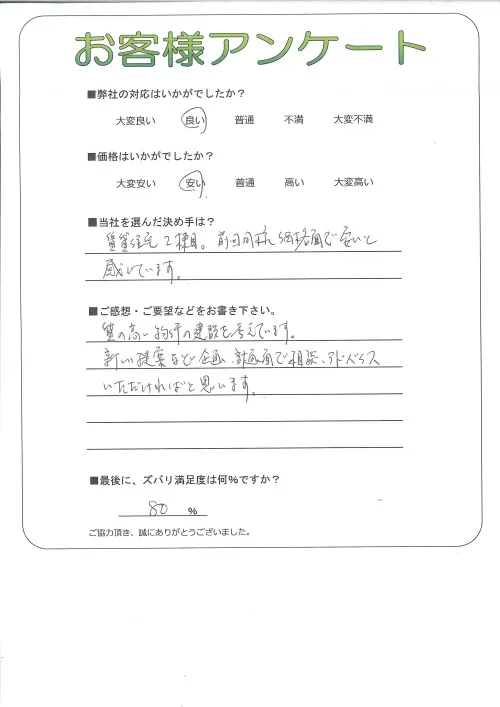 お客様アンケート
■弊社の対応はいかがでしたか？
大変良い　良い　普通　不満　大変不満
■価格はいかがでしたか？
大変安い　安い　普通　高い　大変高い
■当社を選んだ決め手は？
賃貸住宅2棟目。前回同様、価格面で安いと
感じています。
■ご感想・ご要望などをお書き下さい。
質の高い物件の建設を考えています。
新しい提案など企画、計画面で相談、アドバイス
いただければと思います。
■最後に、ズバリ満足度は何％ですか？
80 ％
ご協力頂き、誠にありがとうございました。